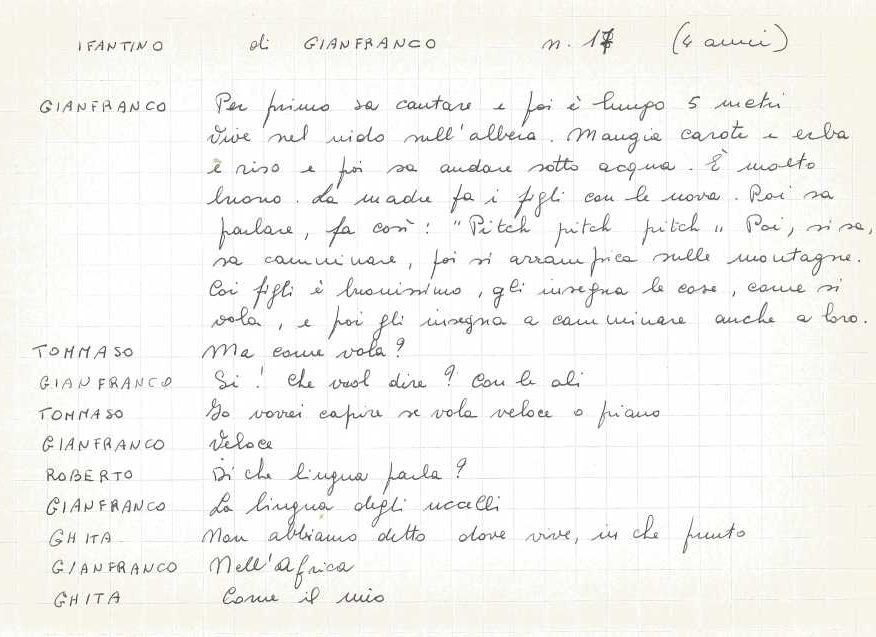 IFANTINO di GIANFRANCO n. 17 (4 anni)
GIANFRANCO Per primo sa cantare e poi è lungo 5 metri
Vive nel nido sull'albero. Mangia carote e erba
e riso e poi sa andare sotto acqua. È molto
buono. La madre fa i figli con le uova. Poi sa
parlare, fa così: "Pitch pitch pitch" Poi, si sa,
sa camminare, poi si arrampica sulle montagne.
Coi figli è buonissimo, gli insegna le cose, come si
vola, e poi gli insegna a camminare anche a loro.
TOMMASO Ma come vola?
GIANFRANCO Si! Che vuol dire? Con le ali
TOMMASO Io vorrei capire se vola veloce o piano
GIANFRANCO Veloce
ROBERTO Di che lingua parla?
GIANFRANCO La lingua degli uccelli
GHITA Non abbiamo detto dove vive, in che punto
GIANFRANCO Nell'Africa
GHITA Come il mio